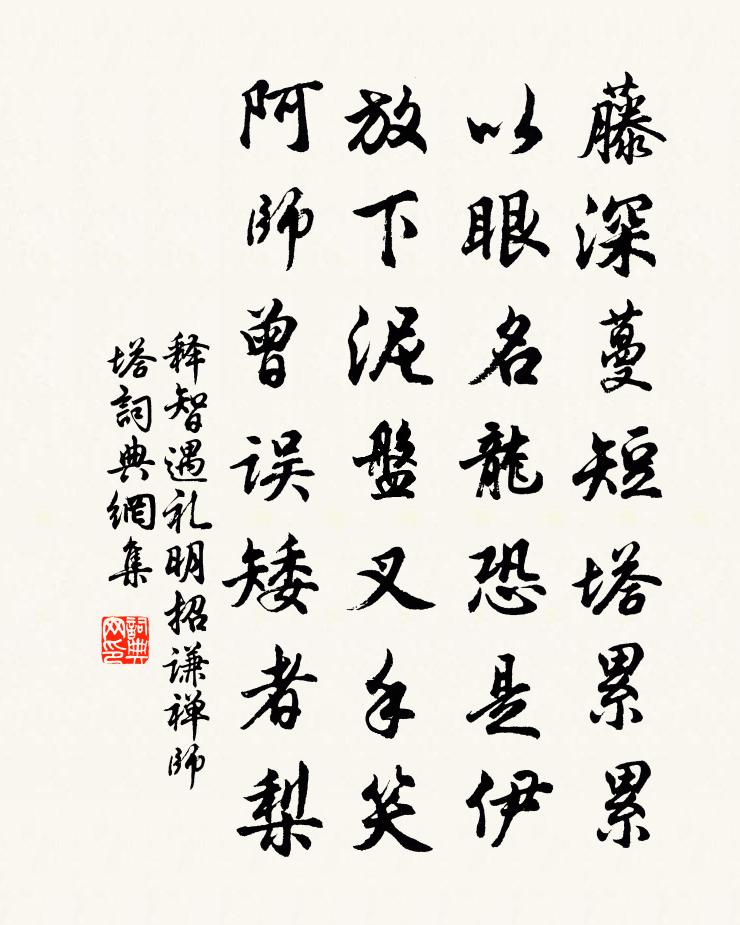 藤深蔓短塔累累
以眼名龍恐是伊
放下泥盤叉手笑
阿師曾误矮者梨
释智遇礼明招谦禅师
塔詞典網集
詞典网印